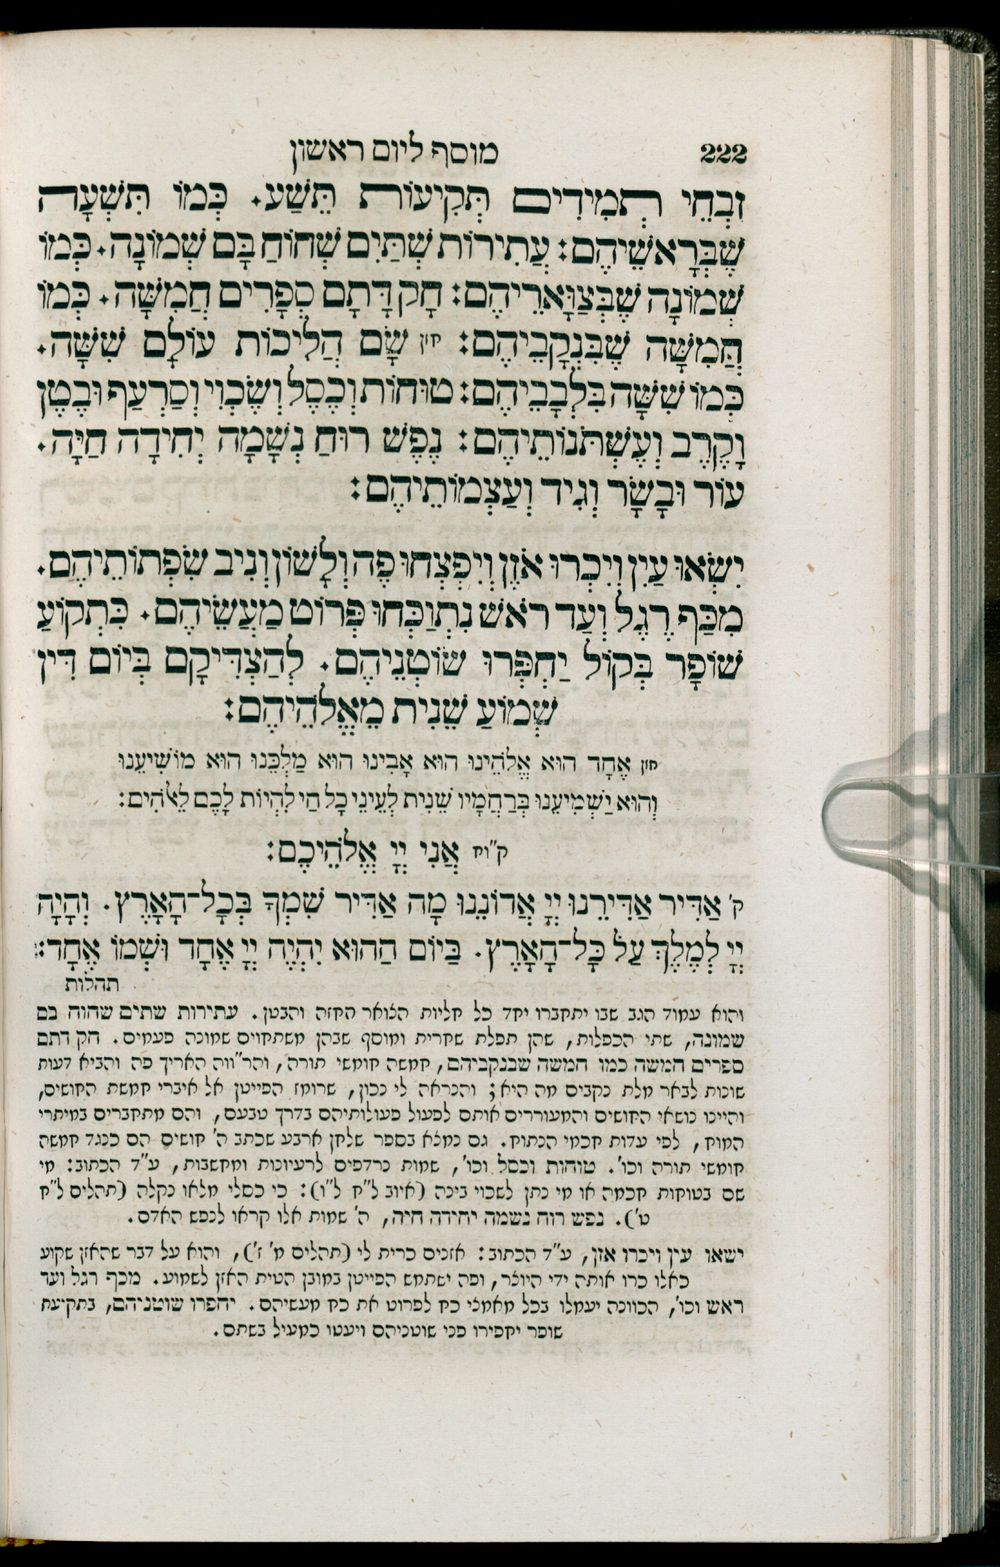 222 מוסף ליום ראשון
זִבְחֵי תְמִידִים תְּקִיעוֹת תֵּשַׁע. כְּמוֹ תִּשְׁעָה
שֶׁבְּרָאשֵׁיהֶם: עֲתִירוֹת שְׁתַּיִם שֶׁחוֹחַ בָּם שְׁמוֹנָה. כְּמוֹ
שְׁמוֹנָה שֶׁבְּצַוְּארֵיהֶם: חָק דָּתָם סְפָרִים חֲמִשָּׁה. כְּמוֹ
חֲמִשָּׁה שֶׁבִּנְקָבֵיהֶם: חזן שָׂם הֲלִיכוֹת עוֹלָם שִׁשָּׁה.
כְּמוֹ שִׁשָּׁה בִּלְבָבֵיהֶם: טוּחוֹת וְכֶסֶל וְשֶׂכְוִי וְסַרְעַף וּבֶטֶן
וָקֶרֶב וְעֶשְׁתֹּנוֹתֵיהֶם: נֶפֶשׁ רוּחַ נְשָׁמָה יְחִידָה חַיָּה.
עוֹר וּבָשָׂר וְגִיד וְעַצְמוֹתֵיהֶם:
יִשְׂאוּ עַיִן וְיִכְרוּ אֹזֶן וְיִפְצְחוּ פֶה וְלָשׁוֹן וְנִיב שִׂפְתוֹתֵיהֶם.
מִכַּף רֶגֶל וְעַד רֹאשׁ נִתְוַכְּחוּ פְּרוֹט מַעֲשֵׂיהֶם. כִּתְקוֹעַ
שׁוֹפָר בְּקוֹל יַחְפְּרוּ שׂוֹטְנֵיהֶם. לְהַצְדִּיקָם בְּיוֹם דִּין
שְׁמוֹעַ שֵׁנִית מֵאֱלֹהֵיהֶם:
חזן אֶחָד הוּא אֱלֹהֵינוּ הוּא אָבִינוּ הוּא מַלְכֵּנוּ הוּא מוֹשִׁיעֵנוּ
וְהוּא יַשְׁמִיעֵנוּ בְּרַחֲמָיו שֵׁנִית לְעֵינֵי כָל חַי לִהְיוֹת לָכֶם לֵאלֹהִים:
ק״וח אֲנִי יְיָ אֱלֹהֵיכֶם:
ק׳ אַדִּיר אַדִּירֵנוּ יְיָ אֲדוֹנֵנוּ מָה אַדִּיר שִׁמְךָ בְּכָל־הָאָרֶץ. וְהָיָה
יְיָ לְמֶלֶךְ עַל כָּל־הָאָרֶץ. בַּיּוֹם הַהוּא יִהְיֶה יְיָ אֶחָד וּשְׁמוֹ אֶחָד:
תהלות
והוא עמוד הגב שבו יתחברו יחד כל חליות הצואר החזה והבטן. עתירות שתים שחוח בם
שמונה, שתי הכפלות, שהן תפלת שחרית ומוסף שבהן משתחוים שמונה פעמים. חק דתם
ספרים חמשה כמו חמשה שבנקביהם, חמשה חומשי תורה, והר״ווה האריך פה והביא דעות
שונות לבאר מלת נקבים מה היא; והנראה לי נכון, שרומז הפייטן אל איברי חמשת החושים,
והיינו נושאי החושים והמעוררים אותם לפעול פעולותיהם בדרך טבעם, והם מתחברים במיתרי
המוח, לפי עדות חכמי הנתוח. גם נמצא בספר שלחן ארבע שכתב ה׳ חושים הם כנגד חמשה
חומשי תורה וכו׳. טוחות וכסל וכו׳, שמות נרדפים לרעיונות ומחשבות, ע״ד הכתוב: מי
שם בטוחות חכמה או מי נתן לשכוי בינה (איוב ל״ח ל״ו): כי כסלי מלאו נקלה (תהלים ל״ח
ט׳). נפש רוח נשמה יחידה חיה, ה׳ שמות אלו קראו לנפש האדם.
ישאו עין ויכרו אזן, ע״ד הכתוב: אזנים כרית לי (תהלים מ׳ ז׳), והוא על דבר שהאזן שקוע
כאלו כרו אותה ידי היוצר, ופה ישתמש הפייטן במובן הטית האזן לשמוע. מכף רגל ועד
ראש וכו׳, הכוונה יעמלו בכל מאמצי כח לפרוט את כח מעשיהם. יחפרו שוטניהם, בתקיעת
שופר יחפירו פני שוטניהם ויעטו כמעיל בשתם.